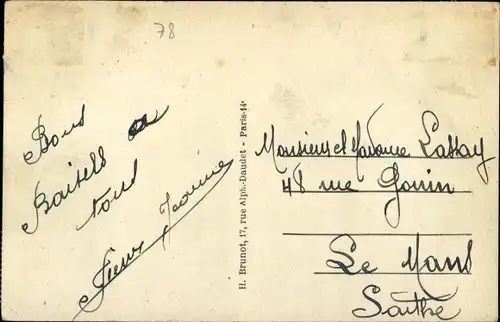 78
Bons
Baisers a
tous
Jeanne
H. Brunot, 17, rue Alph.-Daudet - Paris-14e
Monsieur et Madame Lassay
48 rue Gouin
Le Mans
Sarthe